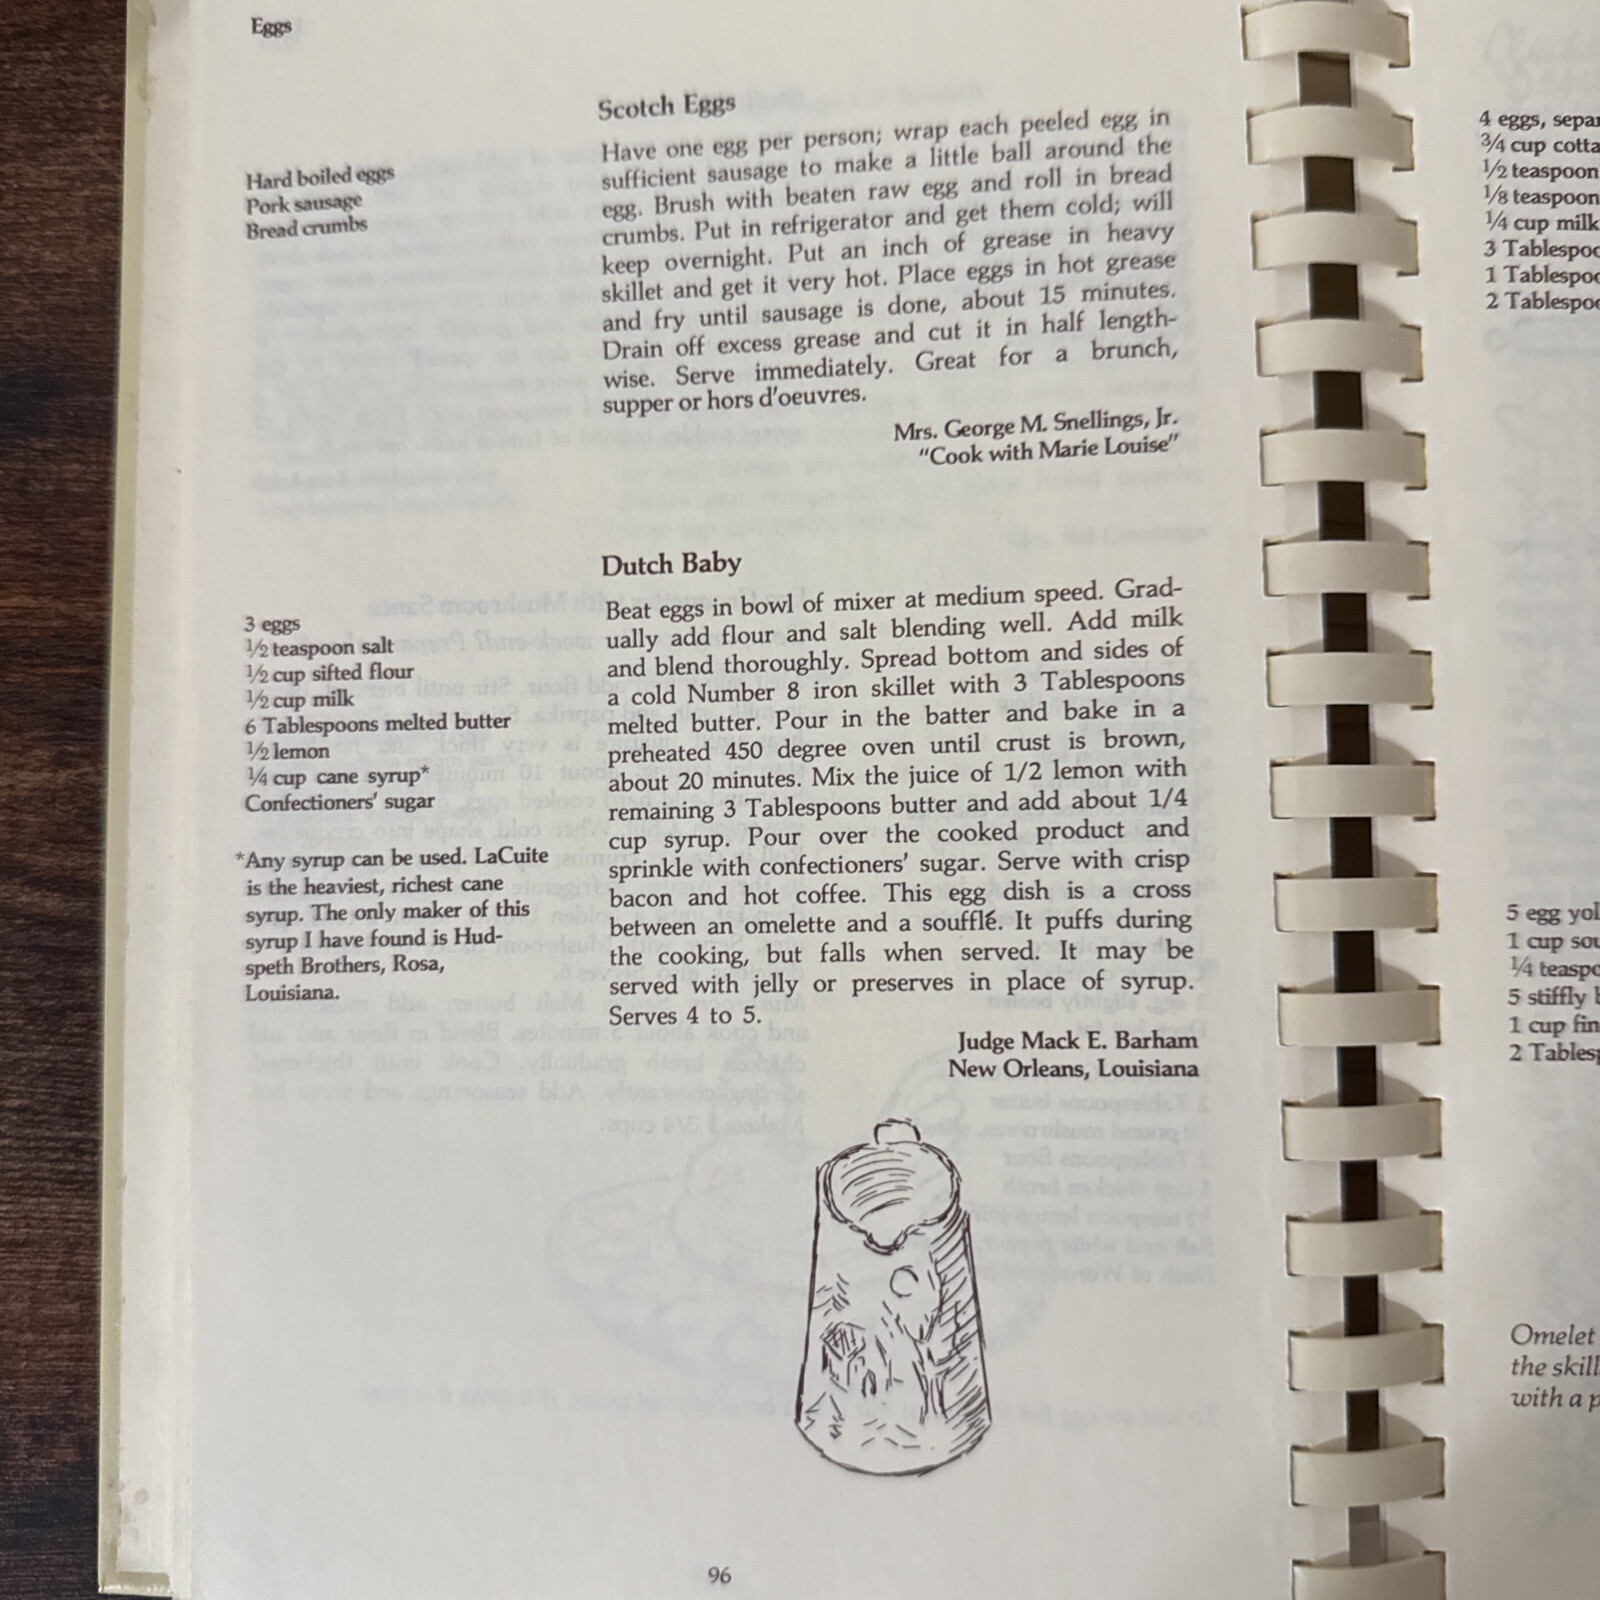 Eggs
Scotch Eggs
Hard boiled eggs
Pork sausage
Bread crumbs
Have one egg per person; wrap each peeled egg in
sufficient sausage to make a little ball around the
egg. Brush with beaten raw egg and roll in bread
crumbs. Put in refrigerator and get them cold; will
keep overnight. Put an inch of grease in heavy
skillet and get it very hot. Place eggs in hot grease
and fry until sausage is done, about 15 minutes.
Drain off excess grease and cut it in half length-
wise. Serve immediately. Great for a brunch,
supper or hors d'oeuvres.
Mrs. George M. Snellings, Jr.
"Cook with Marie Louise"
Dutch Baby
3 eggs
½ teaspoon salt
½ cup sifted flour
½ cup milk
6 Tablespoons melted butter
½ lemon
¼ cup cane syrup*
Confectioners' sugar
*Any syrup can be used. LaCuite
is the heaviest, richest cane
syrup. The only maker of this
syrup I have found is Hud-
speth Brothers, Rosa,
Louisiana.
Beat eggs in bowl of mixer at medium speed. Grad-
ually add flour and salt blending well. Add milk
and blend thoroughly. Spread bottom and sides of
a cold Number 8 iron skillet with 3 Tablespoons
melted butter. Pour in the batter and bake in a
preheated 450 degree oven until crust is brown,
about 20 minutes. Mix the juice of 1/2 lemon with
remaining 3 Tablespoons butter and add about 1/4
cup syrup. Pour over the cooked product and
sprinkle with confectioners' sugar. Serve with crisp
bacon and hot coffee. This egg dish is a cross
between an omelette and a soufflé. It puffs during
the cooking, but falls when served. It may be
served with jelly or preserves in place of syrup.
Serves 4 to 5.
Judge Mack E. Barham
New Orleans, Louisiana
96
4 eggs,
¾ cup
½ teaspoon
⅛ teaspoon
¼ cup milk
3
1
2
5 egg
1 cup
¼
5 stiffly
1 cup
2
Omelet
the
with a